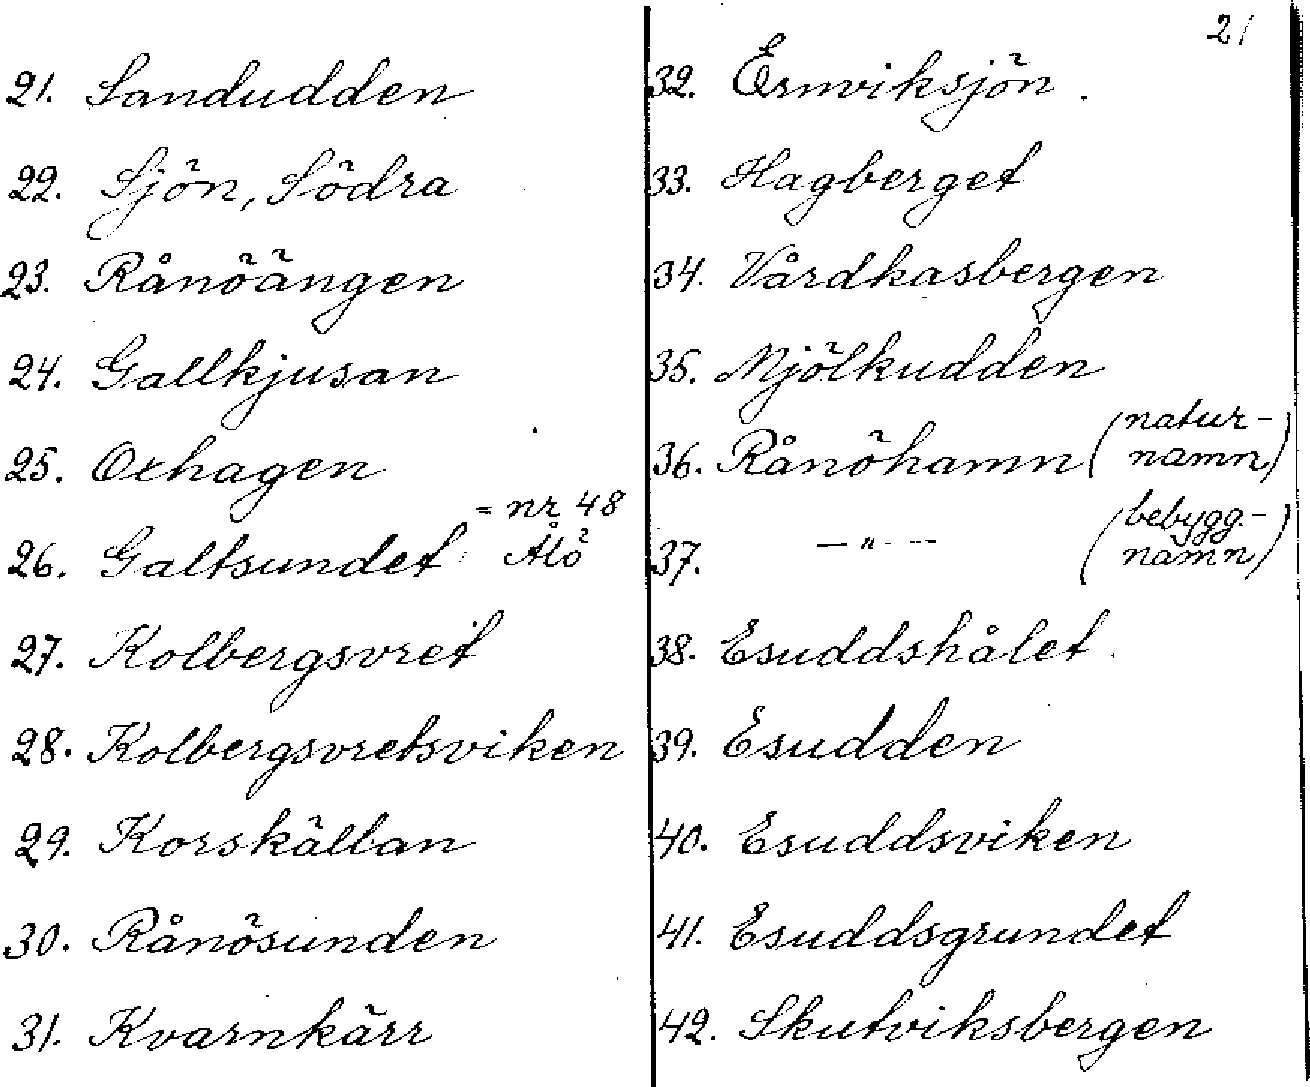 21
21. Sandudden
22. Sjön, Södra
23. Rånöängen
24. Gallkjusan
25. Oxhagen
26. Galtsundet = nr 48 Ålö
27. Kolbergsvret
28. Kolbergsvretsviken
29. Korskällan
30. Rånösunden
31. Kvarnkärr
32. Ormviksjön.
33. Hagberget
34. Vårdkasbergen
35. Mjölkudden
36. Rånöhamn (natur-
namn)
37. —"— (bebygg.-
namn)
38. Esuddshålet
39. Esudden
40. Esuddsviken
41. Esuddsgrundet
42. Skutviksbergen